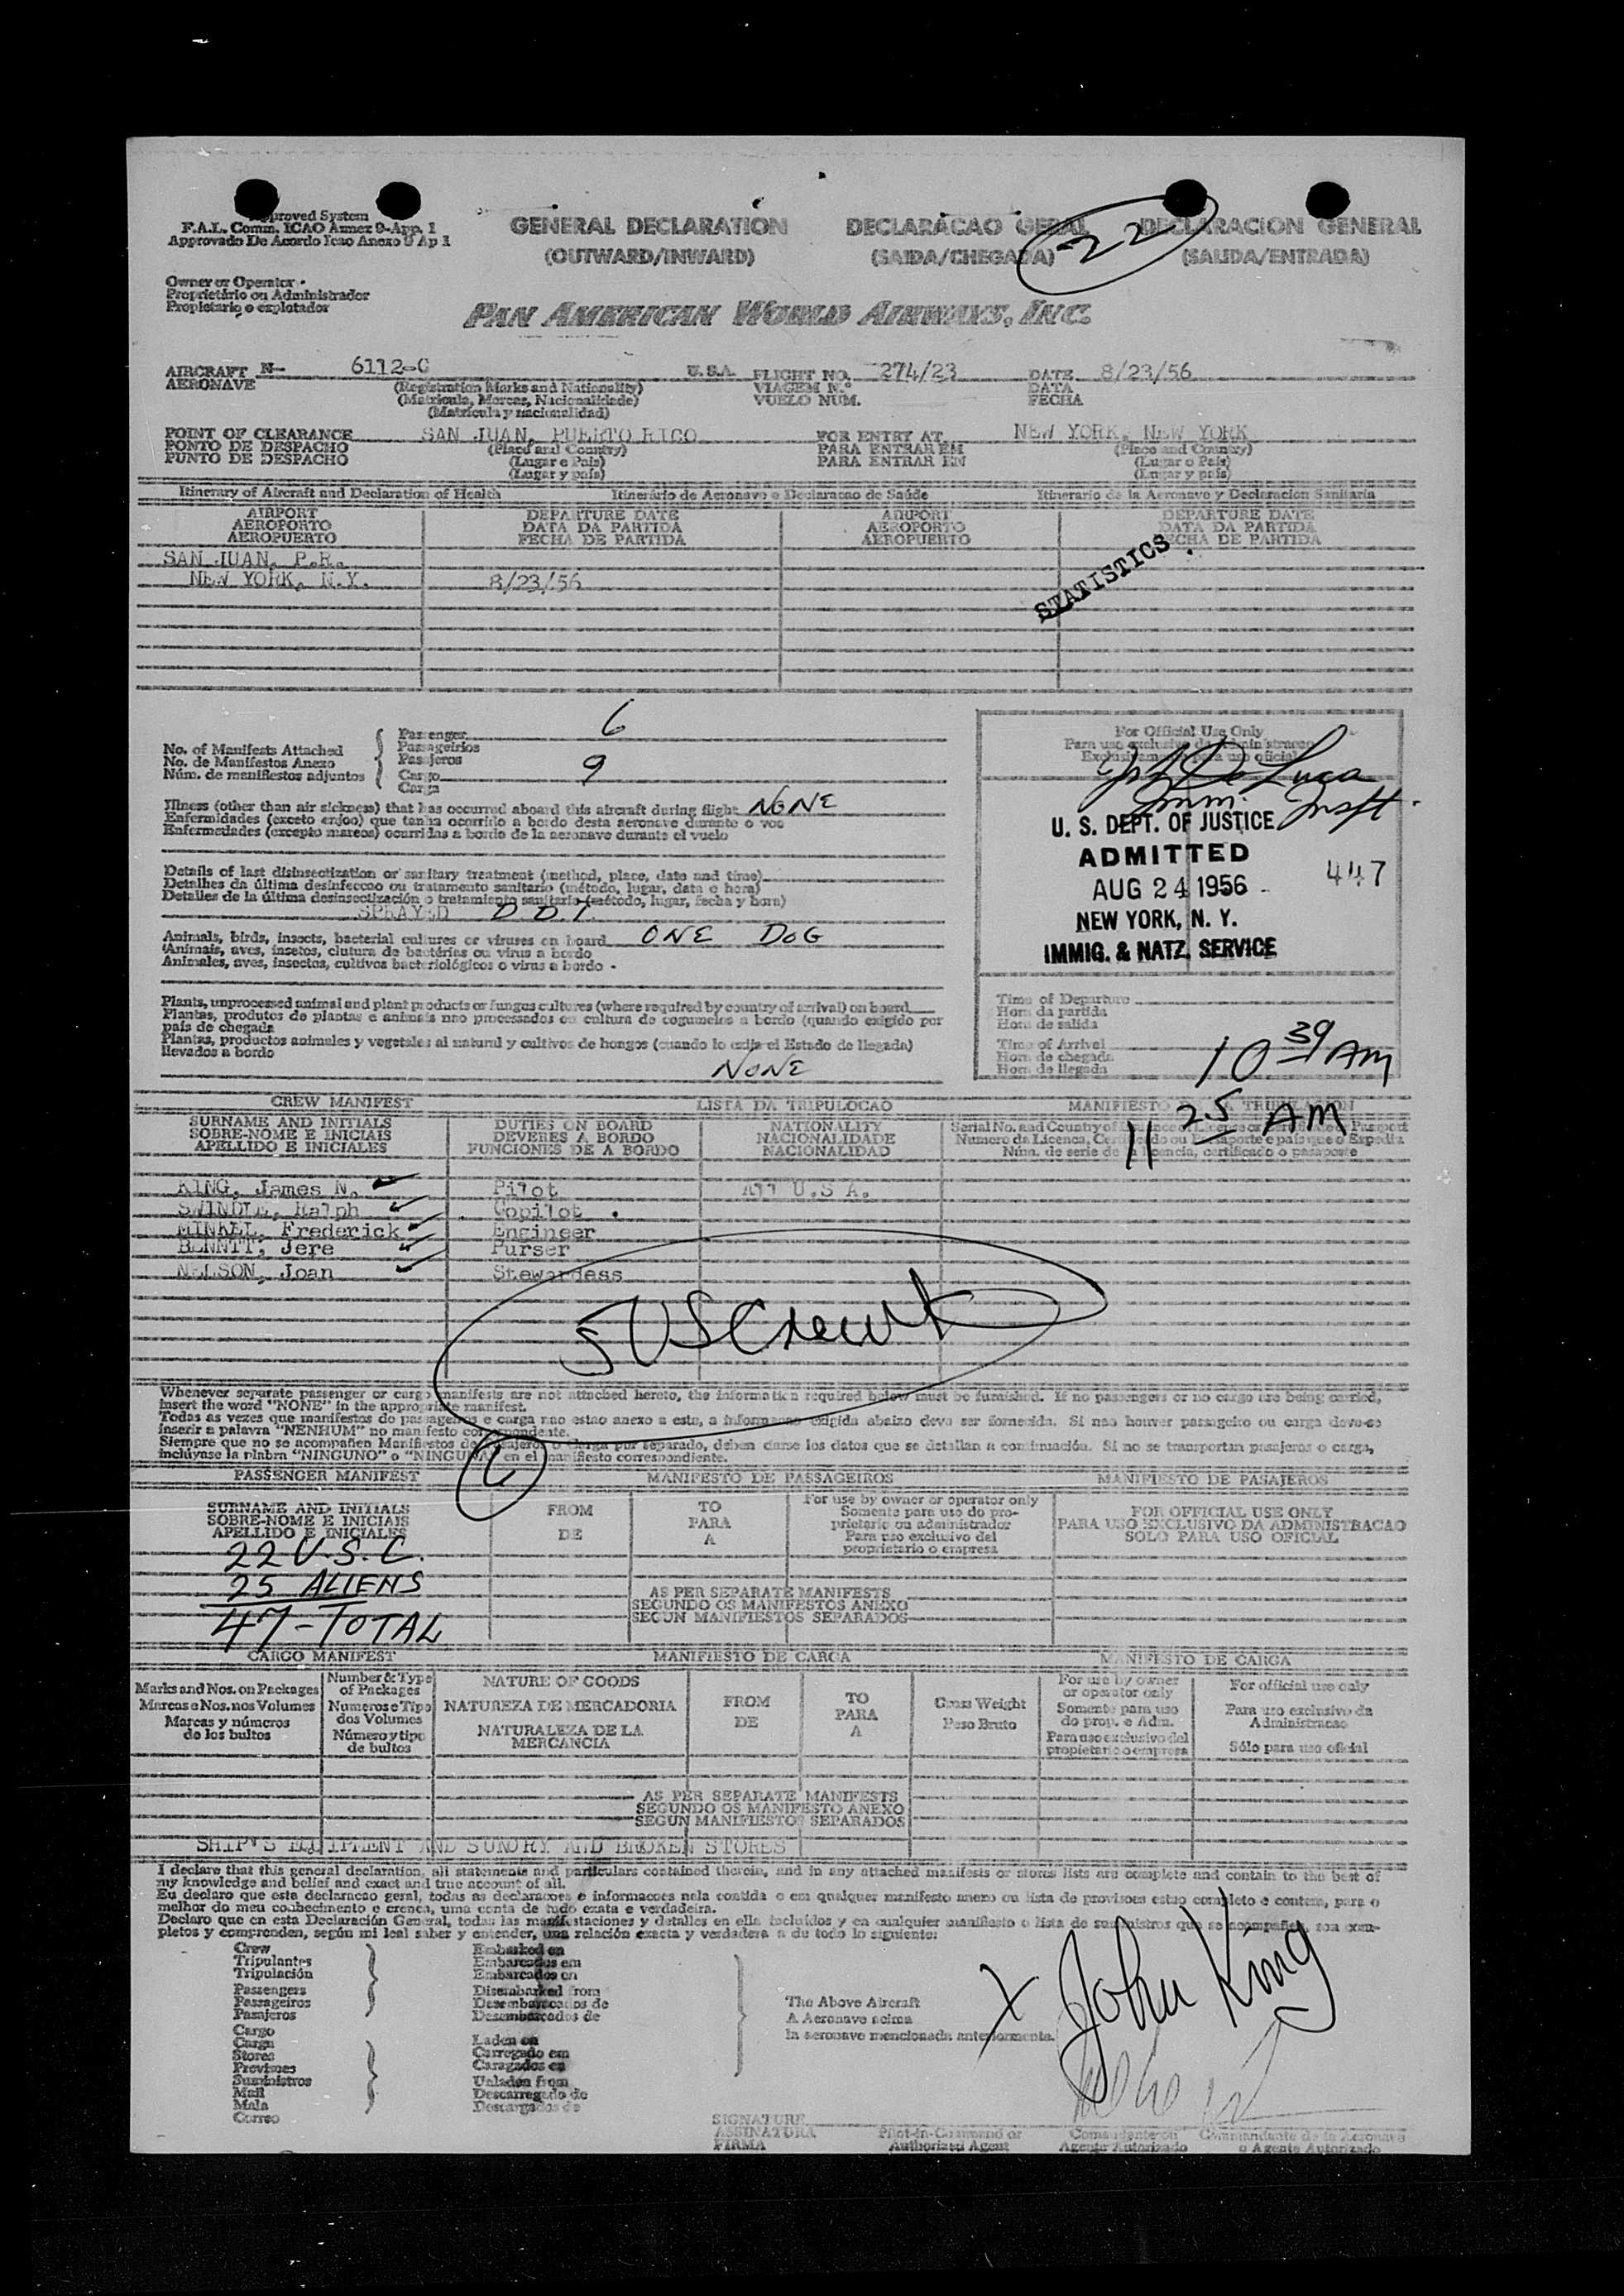 Approved System
F.A.L. Comm. ICAO Annex 9-App. 1
Approvado De Acordo Icao Anexo 9 Ap 1
GENERAL DECLARATION
(OUTWARD/INWARD)
DECLARACAO GERAL
(SAIDA/CHEGADA)
22
DECLARACION GENERAL
(SALIDA/ENTRADA)
Owner or Operator
Proprietário ou Administrador
Propietario o explotador
PAN AMERICAN WORLD AIRWAYS, INC.
AIRCRAFT N- 6112-C U.S.A. FLIGHT NO. 274/23 DATE 8/23/56
AERONAVE (Registration Marks and Nationality) VIAGEM N.º DATA
(Matricula, Marcas, Nacionalidade) VUELO NUM. FECHA
(Matrícula y nacionalidad)
POINT OF CLEARANCE SAN JUAN, PUERTO RICO FOR ENTRY AT NEW YORK, NEW YORK
PONTO DE DESPACHO (Place and Country) PARA ENTRAR EM (Place and Country)
PUNTO DE DESPACHO (Lugar e Pais) PARA ENTRAR EN (Lugar o Pais)
(Lugar y país) (Lugar y país)
Itinerary of Aircraft and Declaration of Health Itinerário de Aeronave e Declaracao de Saúde Itinerario de la Aeronave y Declaracion Sanitaria
AIRPORT DEPARTURE DATE AIRPORT DEPARTURE DATE
AEROPORTO DATA DA PARTIDA AEROPORTO DATA DA PARTIDA
AEROPUERTO FECHA DE PARTIDA AEROPUERTO FECHA DE PARTIDA
SAN JUAN, P.R.
NEW YORK, N.Y. 8/23/56
STATISTICS
No. of Manifests Attached
No. de Manifestos Anexo
Núm. de manifiestos adjuntos
Passenger 6
Passageirios
Pasajeros
Cargo 9
Carga
Illness (other than air sickness) that has occurred aboard this aircraft during flight NONE
Enfermidades (exceto enjoo) que tanha ocorrido a bordo desta aeronave durante o voo
Enfermedades (excepto mareos) ocurridas a bordo de la aeronave durante el vuelo
Details of last disinsectization or sanitary treatment (method, place, date and time)
Detalhes da última desinfeccao ou tratamento sanitario (método, lugar, data e hora)
Detalles de la última desinsectización o tratamiento sanitario (método, lugar, fecha y hora)
SPRAYED D.D.T.
Animals, birds, insects, bacterial cultures or viruses on board ONE DOG
Animais, aves, insetos, clutura de bactérias ou virus a bordo
Animales, aves, insectos, cultivos bacteriológicos o virus a bordo
Plants, unprocessed animal and plant products or fungus cultures (where required by country of arrival) on board
Plantas, produtos de plantas e animais nao processados ou cultura de cogumelos a bordo (quando exigido por
pais de chegada
Plantas, productos animales y vegetales al natural y cultivos de hongos (cuando lo exija el Estado de llegada)
llevados a bordo
NONE
For Official Use Only
Para uso exclusivo da Administracao
Exclusivamente para uso oficial
De Luca
Imm. Inspt.
U. S. DEPT. OF JUSTICE
ADMITTED 447
AUG 24 1956
NEW YORK, N. Y.
IMMIG. & NATZ. SERVICE
Time of Departure
Hora da partida
Hora de salida
Time of Arrival
Hora de chegada
Hora de llegada
10 39 AM
11 25 AM
CREW MANIFEST LISTA DA TRIPULOCAO MANIFIESTO DE LA TRIPULACION
SURNAME AND INITIALS DUTIES ON BOARD NATIONALITY
SOBRE-NOME E INICIAIS DEVERES A BORDO NACIONALIDADE
APELLIDO E INICIALES FUNCIONES DE A BORDO NACIONALIDAD
Serial No. and Country of Issuance of License or Certificate or Passport
Numero da Licenca, Certificado ou Passaporte e pais que o Expediu
Núm. de serie de la licencia, certificado o pasaporte
KING, James N. Pilot All U.S.A.
SWINDLE, Ralph Copilot
MINKEL, Frederick Engineer
BENNTT, Jere Purser
NELSON, Joan Stewardess
5 US Crew
Whenever separate passenger or cargo manifests are not attached hereto, the information required below must be furnished. If no passengers or no cargo are being carried,
insert the word "NONE" in the appropriate manifest.
Todas as vezes que manifestos do passageiros e carga nao estao anexo a esta, a informacao exigida abaixo deve ser fornecida. Si nao houver passageiro ou carga deve-se
inserir a palavra "NENHUM" no manifesto correspondente.
Siempre que no se acompañen Manifiestos de Pasajeros o Carga por separado, deben darse los datos que se detallan a continuación. Si no se transportan pasajeros o carga,
inclúyase la plabra "NINGUNO" o "NINGUNA" en el manifiesto correspondiente.
6
PASSENGER MANIFEST MANIFESTO DE PASSAGEIROS MANIFIESTO DE PASAJEROS
SURNAME AND INITIALS
SOBRE-NOME E INICIAIS
APELLIDO E INICIALES
FROM
DE
TO
PARA
A
For use by owner or operator only
Somente para uso do pro-
prietario ou administrador
Para uso exclusivo del
proprietario o empresa
FOR OFFICIAL USE ONLY
PARA USO EXCLUSIVO DA ADMINISTRACAO
SOLO PARA USO OFICIAL
22 U.S.C.
25 ALIENS
47-TOTAL
AS PER SEPARATE MANIFESTS
SEGUNDO OS MANIFESTOS ANEXO
SEGUN MANIFIESTOS SEPARADOS
CARGO MANIFEST MANIFIESTO DE CARGA MANIFESTO DE CARGA
Marks and Nos. on Packages
Marcas e Nos. nos Volumes
Marcas y números
de los bultos
Number & Type
of Packages
Numeros e Tipo
dos Volumes
Número y tipo
de bultos
NATURE OF GOODS
NATUREZA DE MERCADORIA
NATURALEZA DE LA
MERCANCIA
FROM
DE
TO
PARA
A
Gross Weight
Peso Bruto
For use by owner
or operator only
Somente para uso
do prop. e Adm.
Para uso exclusivo del
propietario o empresa
For official use only
Para uso exclusivo da
Administracao
Sólo para uso oficial
AS PER SEPARATE MANIFESTS
SEGUNDO OS MANIFESTO ANEXO
SEGUN MANIFIESTOS SEPARADOS
SHIP'S EQUIPMENT AND SUNDRY AND BROKEN STORES
I declare that this general declaration, all statements and particulars contained therein, and in any attached manifests or stores lists are complete and contain to the best of
my knowledge and belief and exact and true account of all.
Eu declaro que esta declaracao geral, todas as declaracoes e informacoes nela contida o em qualquer manifesto anexo ou lista de provisoes estao completo e contem, para o
melhor do meu conhecimento e crenca, uma conta de tudo exata e verdadeira.
Declaro que en esta Declaración General, todas las manifestaciones y detalles en ella incluídos y en cualquier manifiesto o lista de suministros que se acompañen, son com-
pletos y comprenden, según mi leal saber y entender, una relación exacta y verdadera a de todo lo siguiente:
Crew
Tripulantes
Tripulación
Passengers
Passageiros
Pasajeros
Cargo
Carga
Stores
Provisoes
Suministros
Mail
Mala
Correo
Embarked on
Embarcados em
Embarcados en
Disembarked from
Desembarcados de
Desembarcados de
Laden on
Carregado em
Caragados en
Unladen from
Descarregado de
Descargados de
The Above Aircraft
A Aeronave acima
la aeronave mencionada anteriormente.
X John King
SIGNATURE
ASSINATURA
FIRMA
Pilot-in-Command or
Authorized Agent
Comandante ou
Agente Autorizado
Commandante de la Aeronave
o Agente Autorizado